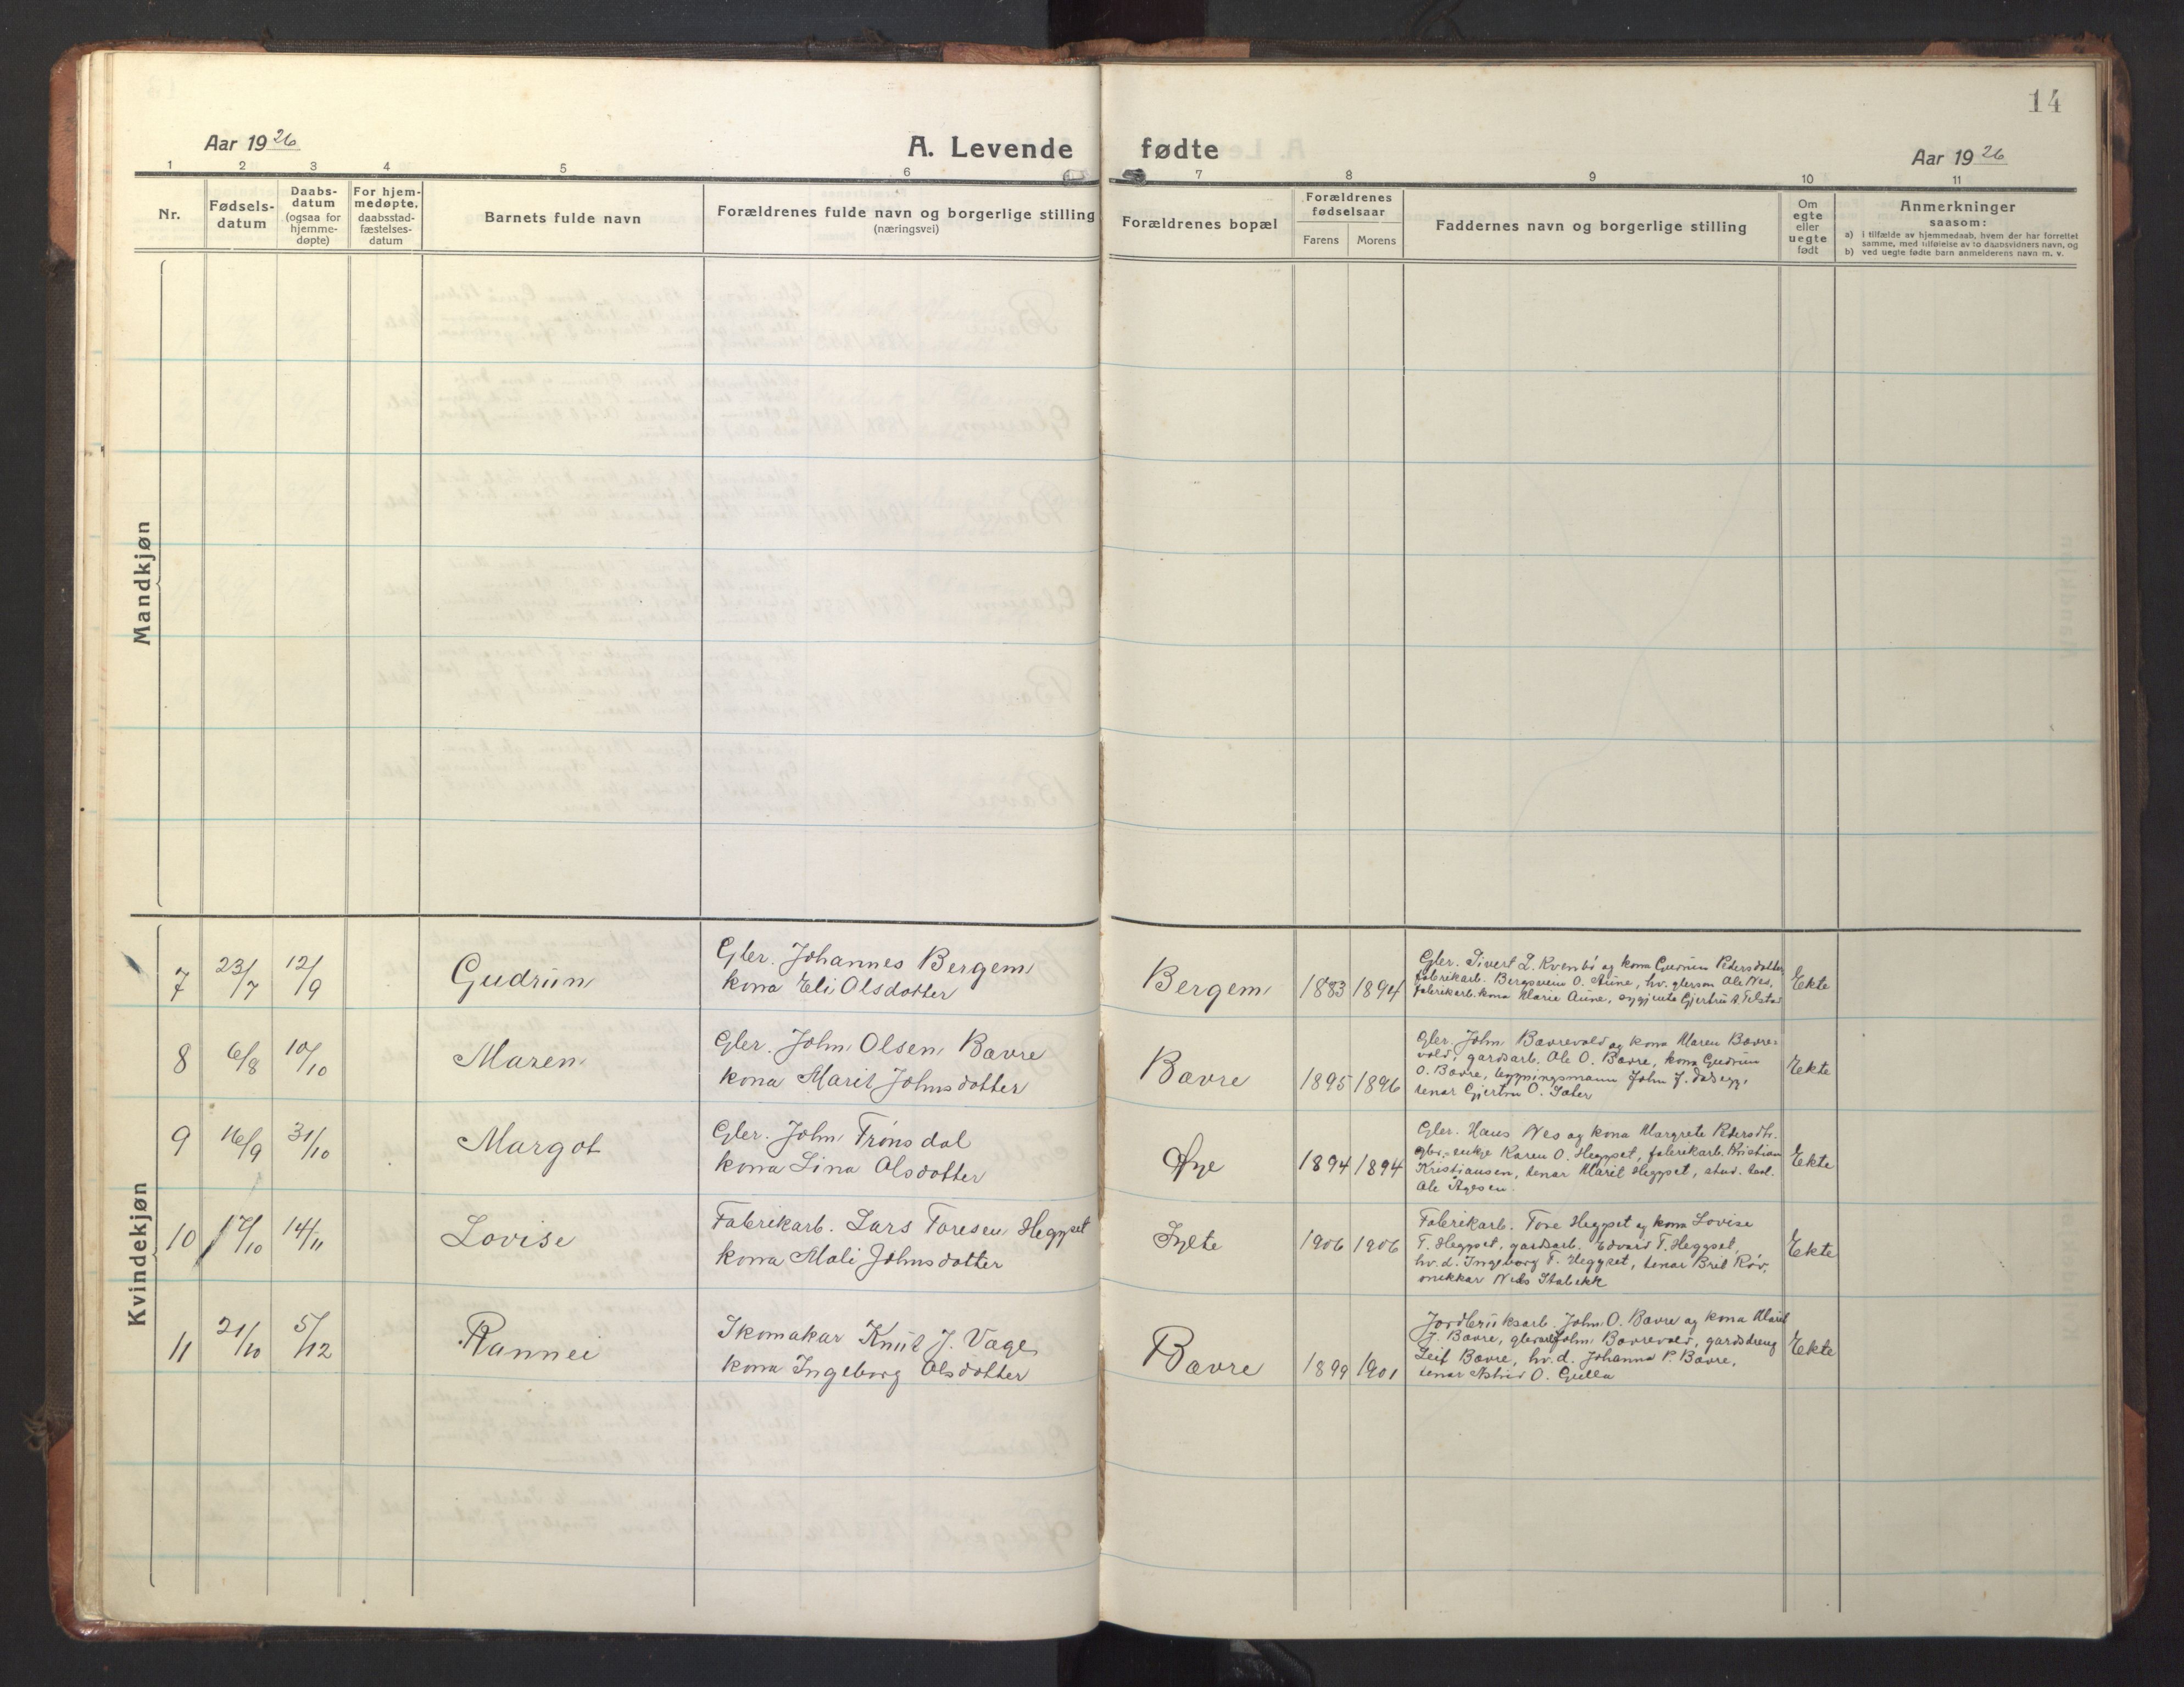 14
Aar 1926
A. Levende fødte
Aar 1926
1 2 3 4 5 6 7 8 9 10 11
Nr.
Fødsels-
datum
Daabs-
datum
(ogsaa for
hjemme-
døpte)
For hjem-
medøpte,
daabsstad-
fæstelses-
datum
Barnets fulde navn
Forældrenes fulde navn og borgerlige stilling
(næringsvei)
Forældrenes bopæl
Forældrenes
fødselsaar
Farens Morens
Faddernes navn og borgerlige stilling
Om
egte
eller
uegte
født
Anmerkninger
saasom:
a) i tilfælde av hjemmedaab, hvem der har forrettet
samme, med tilføielse av to daabsvidners navn, og
b) ved uegte fødte barn anmelderens navn m. v.
Mandkjøn
Kvindekjøn
7 23/7 12/9 Gudrun
Gbr. Johannes Bergem
kona Eli Olsdotter
Bergem 1883 1894
Gbr. Sivert L. Kvenbö og kona Gudrun Petersdotter,
fabrikarb. Bergsvein O. Aune, hv. gbrson Ole Nes,
fabrikarb.kona Marie Aune, sygjente Gjertru A. Telstad
Ekte
8 6/8 10/10 Maren
Gbr. John Olsen Bævre
kona Marit Johnsdotter
Bævre 1895 1896
Gbr. John Bævrevold og kona Maren Bævre=
vold, gardsarb. Ole O. Bævre, kona Gudrun
O. Bævre, bygningsmann John J.
tenar Gjertru O. Sæter
Ekte
9 16/9 31/10 Margot
Gbr. John Trönsdal
kona Lina Olsdotter
Øye 1894 1894
Gbr. Hans Nes og kona Margrete Petersdtr.
gbr.-enkje Karen O. Heggset, fabrikarb. Kristian
Kristiansen, tenar Marit Heggset, stud.
Ole Aagesen.
Ekte
10 17/10 14/11 Lovise
Fabrikarb. Lars Toresen Heggset
kona Mali Johnsdotter
Sylte 1906 1906
Fabrikarb. Tore Heggset og kona Lovise
T. Heggset, gardsarb. Edvard T. Heggset,
hv. d. Ingeborg T. Heggset, tenar Brit Röv,
snikkar Nils Stabekk
Ekte
11 21/10 5/12 Rannei
Skomakar Knut J. Vaage
kona Ingeborg Olsdotter
Bævre 1899 1901
Jordbruksarb. John O. Bævre og kona Marit
J. Bævre, John Bævrevold, gardsdreng
Leif Bævre, hv. d. Johanna P. Bævre,
tenar Astrid O. Gulla
Ekte